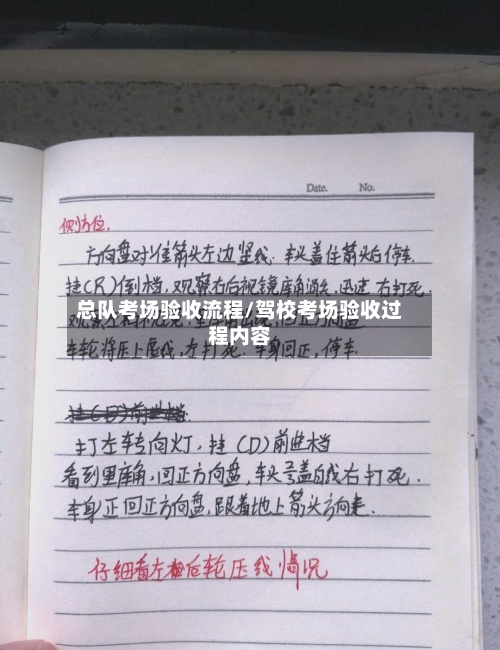 Date. No.
侧方位.
方向盘对准箭头左边竖线.车头盖住箭头后停车.
挂(R)倒档.观察右后视镜库角消失.迅速右打死.
总队考场验收流程/驾校考场验收过
程内容
车轮将压上虚线,左打死.车身回正,停车.
挂(D)前进档.
打左转向灯.挂(D)前进档
看到里库角,回正方向盘,车头盖白线右打死.
车身正回正方向盘,跟着地上箭头方向走.
仔细看左右后轮压线情况